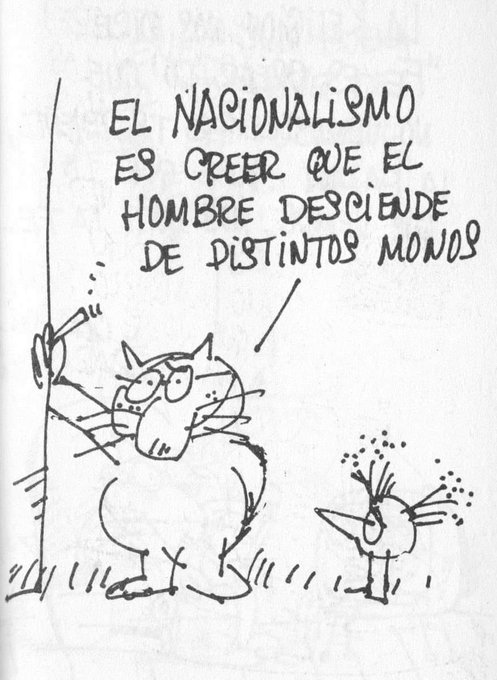 EL NACIONALISMO
ES CREER QUE EL
HOMBRE DESCIENDE
DE DISTINTOS MONOS